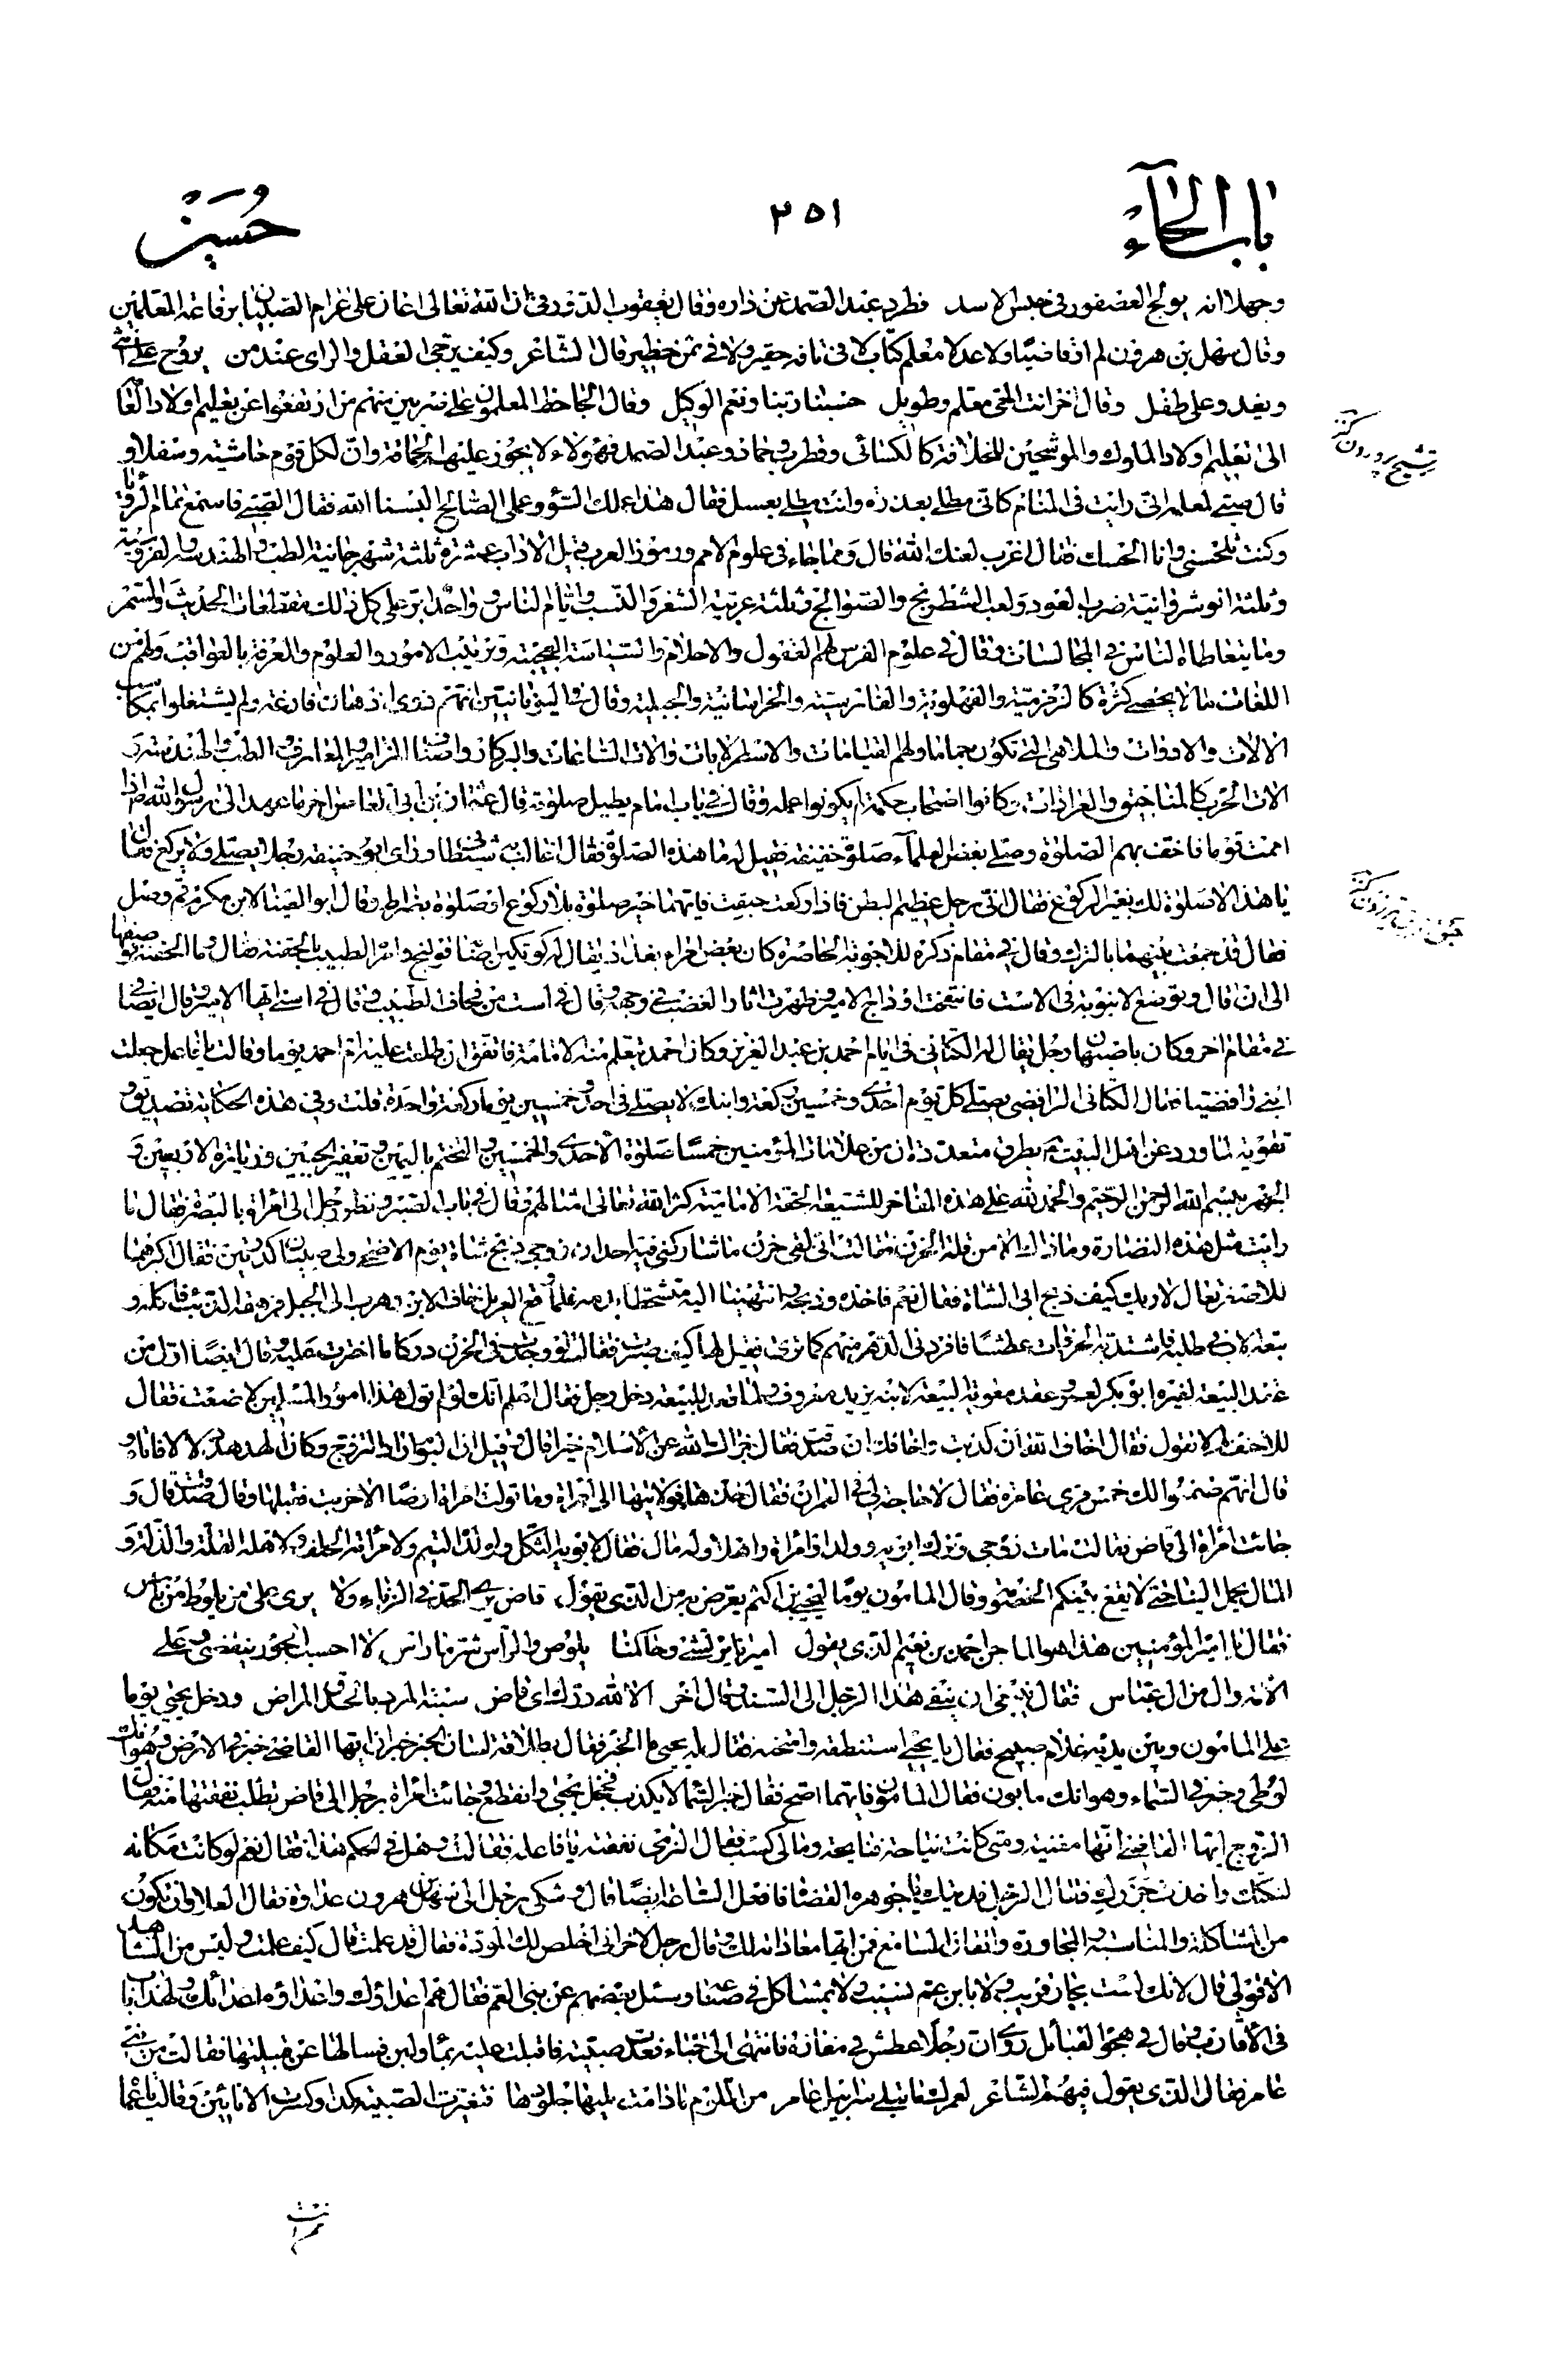 باب الحاء
٢٥١
حسين
وجهلا انه يولج العصفور في حبس الاسد فطرده عبد الصمد عن داره وقال يعقوب الدورقي ان الله تعالى اعان على غرام الصبيان برقاعة المعلمين
وقال سهل بن هرون لم اذ قاضيا ولا عدلا معلم كتاب لا في تافه حقير ولا في ثمن خطير قال الشاعر وكيف يرجى العقل والراى عند من يروح على انثى
ويغدو على طفل وقال اخر انت الحمى معلم وطويل حسبنا ربنا ونعم الوكيل وقال الجاحظ المعلمون على ضربين منهم من ارتفعوا عن تعليم اولاد العامة
الى تعليم اولاد الملوك والمرشحين للخلافة كالكسائى وقطرب وحماد وعبد الصمد فهؤلاء لا يجوز عليهم الحماقة وان لكل قوم حاشية وسفلا و
قال صبى لمعلمه انى رايت فى المنام كانى مطلى بعذرة وانت مطلى بعسل فقال هذا عملك السوء وعملى الصالح البسنا الله فقال الصبى فاسمع تمام الرؤيا
وكنت تلحسنى وانا الحسك فقال اغرب لعنك الله قال ومما جاء فى علوم الامم ورموز العرب قيل الاداب عشرة ثلثة شهرجانية الطب والهندسة والفروسية
وثلثة انوشروانية ضرب العود ولعب الشطرنج والصوالج وثلثة عربية الشعر والنسب وايام الناس وواحدة ابر على كل ذلك مقطعات الحديث والسمر
وما يتعاطاه الناس فى المجالسات وقال فى علوم الفرس لهم العقول والاحلام والسياسة العجيبة وترتيب الامور والعلوم والمعرفة بالعواقب ولهم من
اللغات ما لا يحصى كثرة كالزمزمية والفهلوية والفارسية والخراسانية والجبلية وقال فى اليونانيين انهم ذوى اذهان فارغة ولم يشتغلوا بمكاسب
الالات والادوات والملاهى التى تكون جماما ولهم القبانات والاسطرلابات والات الساعات والبركار واصناف المزامير والمعازف والطب والهندسة و
الات الحرب كالمناجنيق والعرادات وكانوا اصحاب حكمة لم يكونوا عملة وقال فى باب امام يطيل صلوته قال عثمان بن ابى العاص اخر ما عهد الى رسول الله اذا
اممت قوما فاخفف بهم الصلوة وصلى بعض العلماء صلوة خفيفة فقيل له ما هذه الصلوة فقال وراى ابو حنيفة رجلا يصلى ولا يركع فقال
يا هذا لا صلوة لك بغير الركوع فقال انى رجل عظيم البطن فاذا ركعت حبقت فايهما خير صلوة بلا ركوع او صلوة بضراط وقال ابو العيناء لابن مكرم قم وصل
فقال قد جمعت بينهما بالترك وقال فى مقام ذكره للاجوبة الحاضرة كان بعض امراء بغداد يقال له كوتكين اصابه قولنج وامر الطبيب بالحقنة فقال وما الحقنة فوصفها
الى ان قال وتوضع الانبوبة فى الاست فانتفخت اوداج الامير وظهرت اثار الغضب فى وجهه وقال فى است من فخاف الطبيب وقال فى استى ايها الامير وقال ايضا
فى مقام اخر وكان باصبهان رجل يقال له الكنانى فى ايام احمد بن عبد العزيز وكان احمد يتعلم منه الامامة فاتفق ان طلعت عليه ام احمد يوما وقالت يا فاعل جعلت
ابنى رافضيا فقال الكنانى الرافضى يصلى كل يوم احدى وخمسين ركعة وابنك لا يصلى فى احد وخمسين يوما ركعة واحدة قلت وفى هذه الحكاية تصديق و
تقوية لما ورد عن اهل البيت بطرق متعددة ان من علامات المؤمنين خمسا صلوة الاحدى والخمسين والتختم باليمين وتعفير الجبين وزيارة الاربعين و
الجهر ببسم الله الرحمن الرحيم والحمد لله على هذه المفاخر للشيعة الحقة الامامية كثر الله تعالى امثالهم وقال فى باب الصبر ونظر رجل الى امراة بالبصرة فقال ما
رايت مثل هذه النضارة وما ذاك الا من قلة الحزن فقالت انى لفى حزن ما شاركنى فيه احد ان زوجى ذبح شاة يوم الاضحى ولى صبيان كبدرين فقال اكبرهما
للاصغر تعال لاريك كيف ذبح ابى الشاة فقال نعم فاخذه وذبحه وانتهينا اليه متشحطا بدمه فلما وقع العويل خاف الابن وهرب الى الجبل فرهقه الذئب فاكله و
تبعه الاب فى طلبه فاشتد به الحر فمات عطشا فافردنى الدهر منهم كما ترى فقيل لها كيف صبرت فقالت لو وجدت فى الحزن دركا ما اخترت عليه وقال ايضا اول من
عقد البيعة لغيره ابو بكر لعمر وعقد معوية البيعة لابنه يزيد معروف ولما قعد للبيعة دخل رجل فقال اعلم انك لو لم تول هذا امور المسلمين لاضعت فقال
للاحنف لم لا تقول فقال اخاف الله ان كذبت واخافك ان صدقت فقال جزاك الله عن الاسلام خيرا قال وقيل ان البوم اراد التزوج وكان الهدهد دلالا فاتاه و
قال انهم ضمنوا لك خمس قرى عامرة فقال لا حاجة لى فى العمران فقال خذها فولايتها الى امراة وما تولت امراة ارضا الا خربت فقبلها وقال صدقت قال و
جائت امراة الى قاض فقالت مات زوجى وترك ابويه وولدا وامراة واهلا وله مال فقال لابويه الثكل ولولده اليتم ولامراته الخلف ولاهله القلة والذلة و
المال يحمل الينا حتى لا يقع بينكم الخصومة وقال المامون يوما ليحيى بن اكثم يعرض به من الذى يقول قاض يرى الحد فى الزناء ولا يرى على من يلوط من باس
فقال يا امير المؤمنين هذا هو الماجن احمد بن نعيم الذى يقول اميرنا يرتشى وحاكمنا يلوط والراس شر ما راس لا احسب الجور ينقضى وعلى
الامة وال من ال عباس فقال ينبغى ان ينفى هذا الرجل الى السند وقال اخر الا لله درك اى قاض سبته المرد بالحدق المراض ودخل يحيى يوما
على المامون وبين يديه غلام صبيح فقال يا يحيى استنطقه وامتحنه فقال له يحيى ما الخبر فقال بطلاقة لسان الخبر خبران ايها القاضى خبر فى الارض وهو انك
لوطى وخبر فى السماء وهو انك مابون فقال المامون فايهما اصح فقال خبر السماء لا يكذب فخجل يحيى وانقطع وجائت امراة برجل الى قاض تطلب نفقتها منه فقال
الزوج ايها القاضى انها مغنية ومتى كانت نياحة فنايحة ومالى كسب فقال الزمى نفقته يا فاعلة فقالت وهل فى الحكم هذا فقال نعم لو كانت مكانه
لنكتك واخذت حذرك فقال الرجل فديتك يا جوهرة القضاة فافعل الساعة ايضا قال وشكى رجل الى سهل بن هرون عداوة فقال العداوة تكون
من المشاكلة والمناسبة والمجاورة واتفاق الصنايع فمن ايها معاداته لك وقال رجل لاخر انى اخلص لك المودة فقال قد علمت قال كيف علمت وليس من الشاهد
الا قولى قال لانك لست بجار قريب ولا بابن عم نسيب ولا بمشاكل فى صناعة وسئل بعضهم عن بنى العم فقال هم اعداؤك واعداؤه اعدائك ولهذا
فى الاقارب وقال فى هجو القبائل روى ان رجلا عطش فى مفازة فانتهى الى خباء فعدت صبية فاقبلت عليه بماء ولبن فسالها عن قبيلتها فقالت من بنى
عامر فقال الذى يقول فيهم الشاعر لعمرك ما تبلى سرابيل عامر من اللؤم ما دامت عليها جلودها فتغيرت الصبية وكسرت الانائين وقالت يا عم